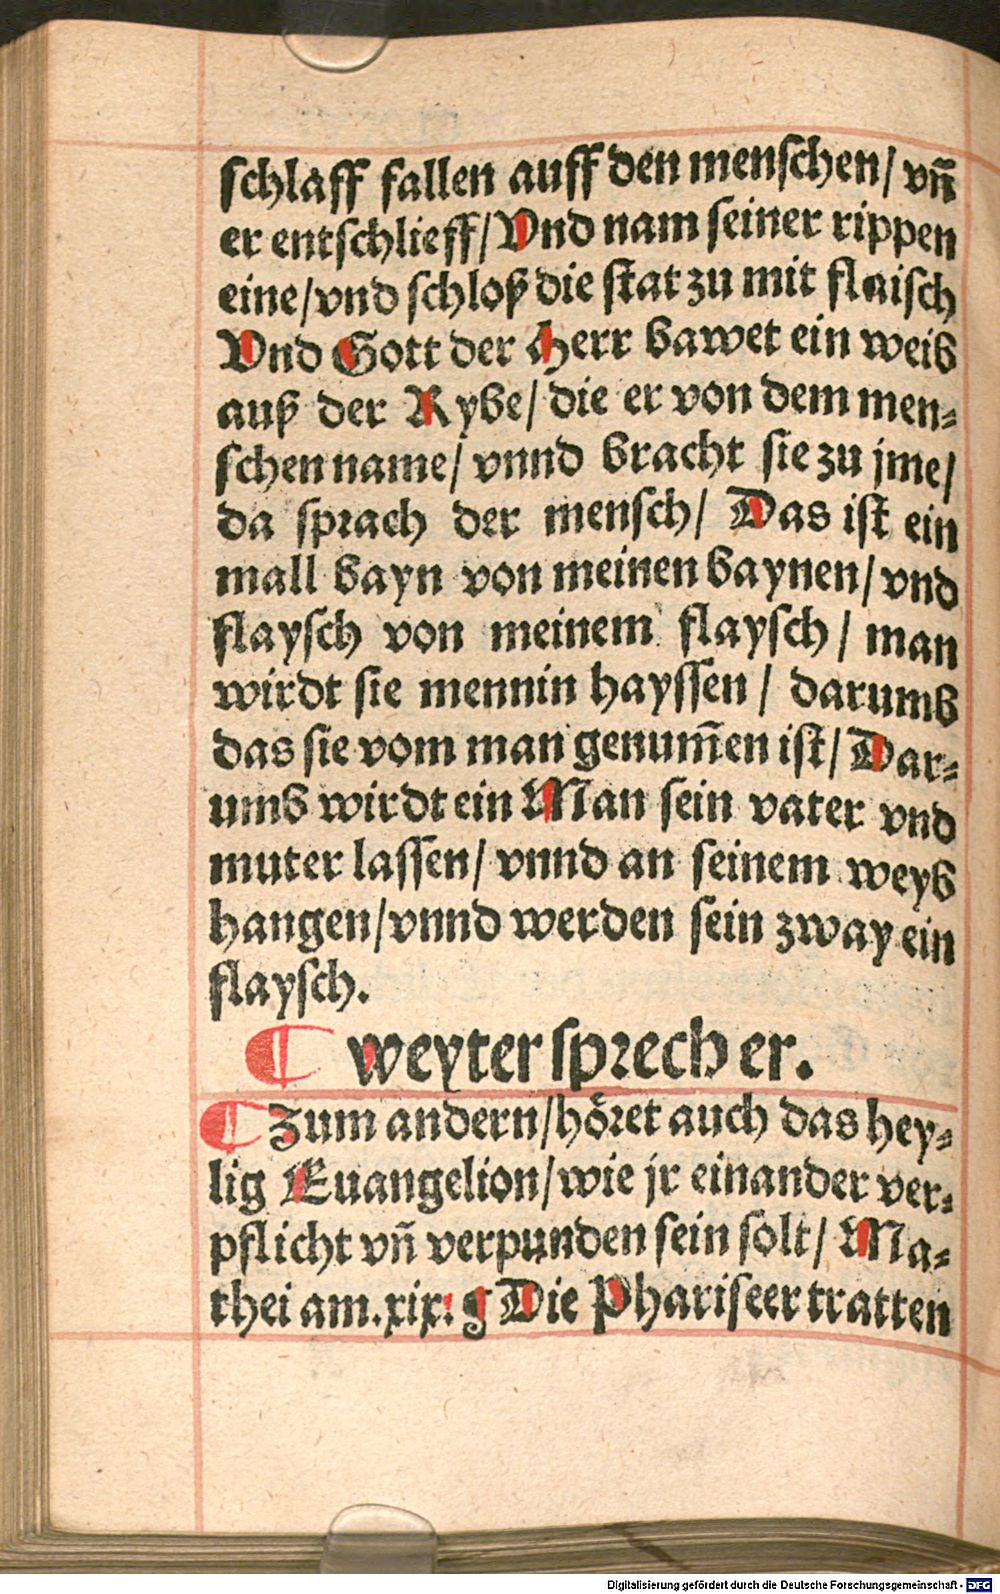 schlaff fallen auff den menschen/ vn̄
er entschlieff/Vnd nam seiner rippen
eine/vnd schloß die stat zu mit flaisch
Vnd Gott der Herr bawet ein weib
auß der Rybe/ die er von dem men⸗
schen name/ vnnd bracht sie zu jme/
da sprach der mensch/ Das ist ein
mall bayn von meinen baynen/ vnd
flaysch von meinem flaysch/ man
wirdt sie mennin hayssen/ darumb
das sie vom man genum̄en ist/ Dar⸗
umb wirdt ein Man sein vater vnd
muter lassen/ vnnd an seinem weyb
hangen/vnnd werden sein zway ein
flaysch.
¶ weyter sprech er.
¶ Zum andern/höret auch das hey⸗
lig Euangelion/wie jr einander ver⸗
pflicht vn̄ verpunden sein solt/ Ma⸗
thei am.xix. g Die Phariseer tratten
Digitalisierung gefördert durch die Deutsche Forschungsgemeinschaft - DFG